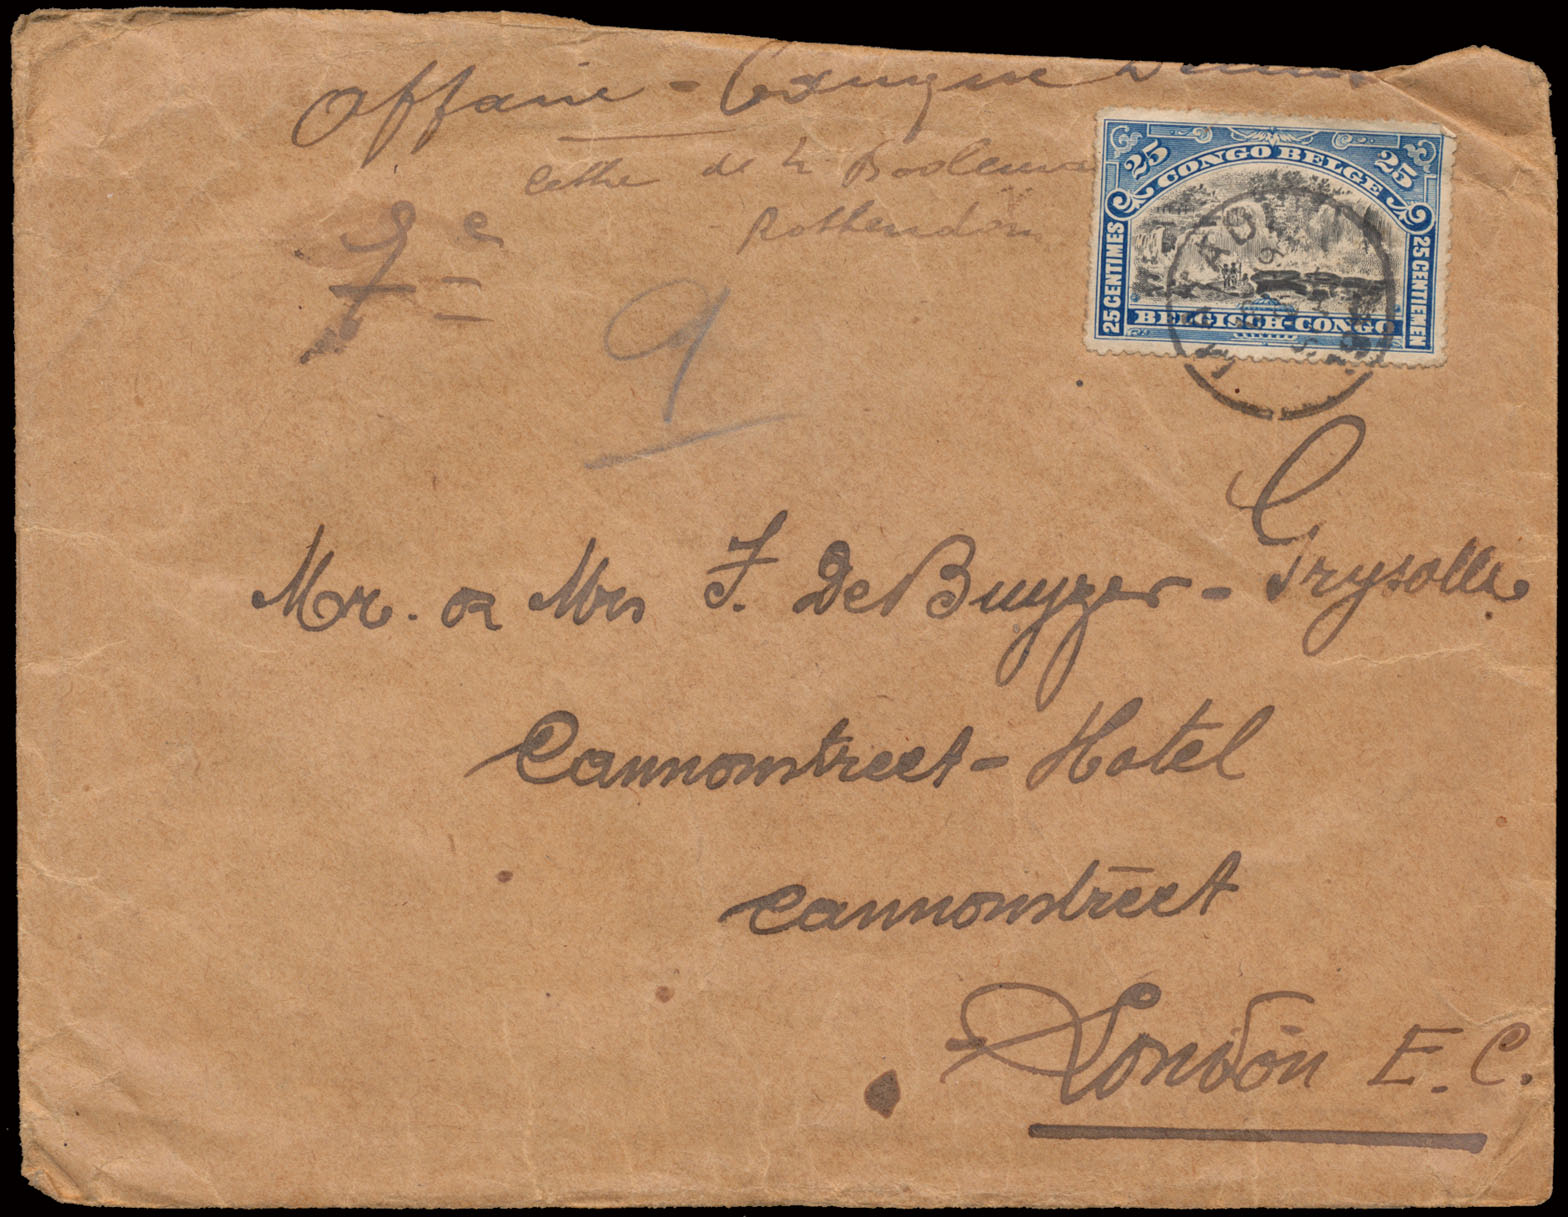 Affaire -
lettre de
Rotterdam
7e
9
25 CONGO BELGE 25
25 CENTIMES
25 CENTIEMEN
BELGISCH-CONGO
Mr. or Mrs F. De Buyzer - Grysolle
Cannonstreet - Hotel
Cannonstreet
London E. C.